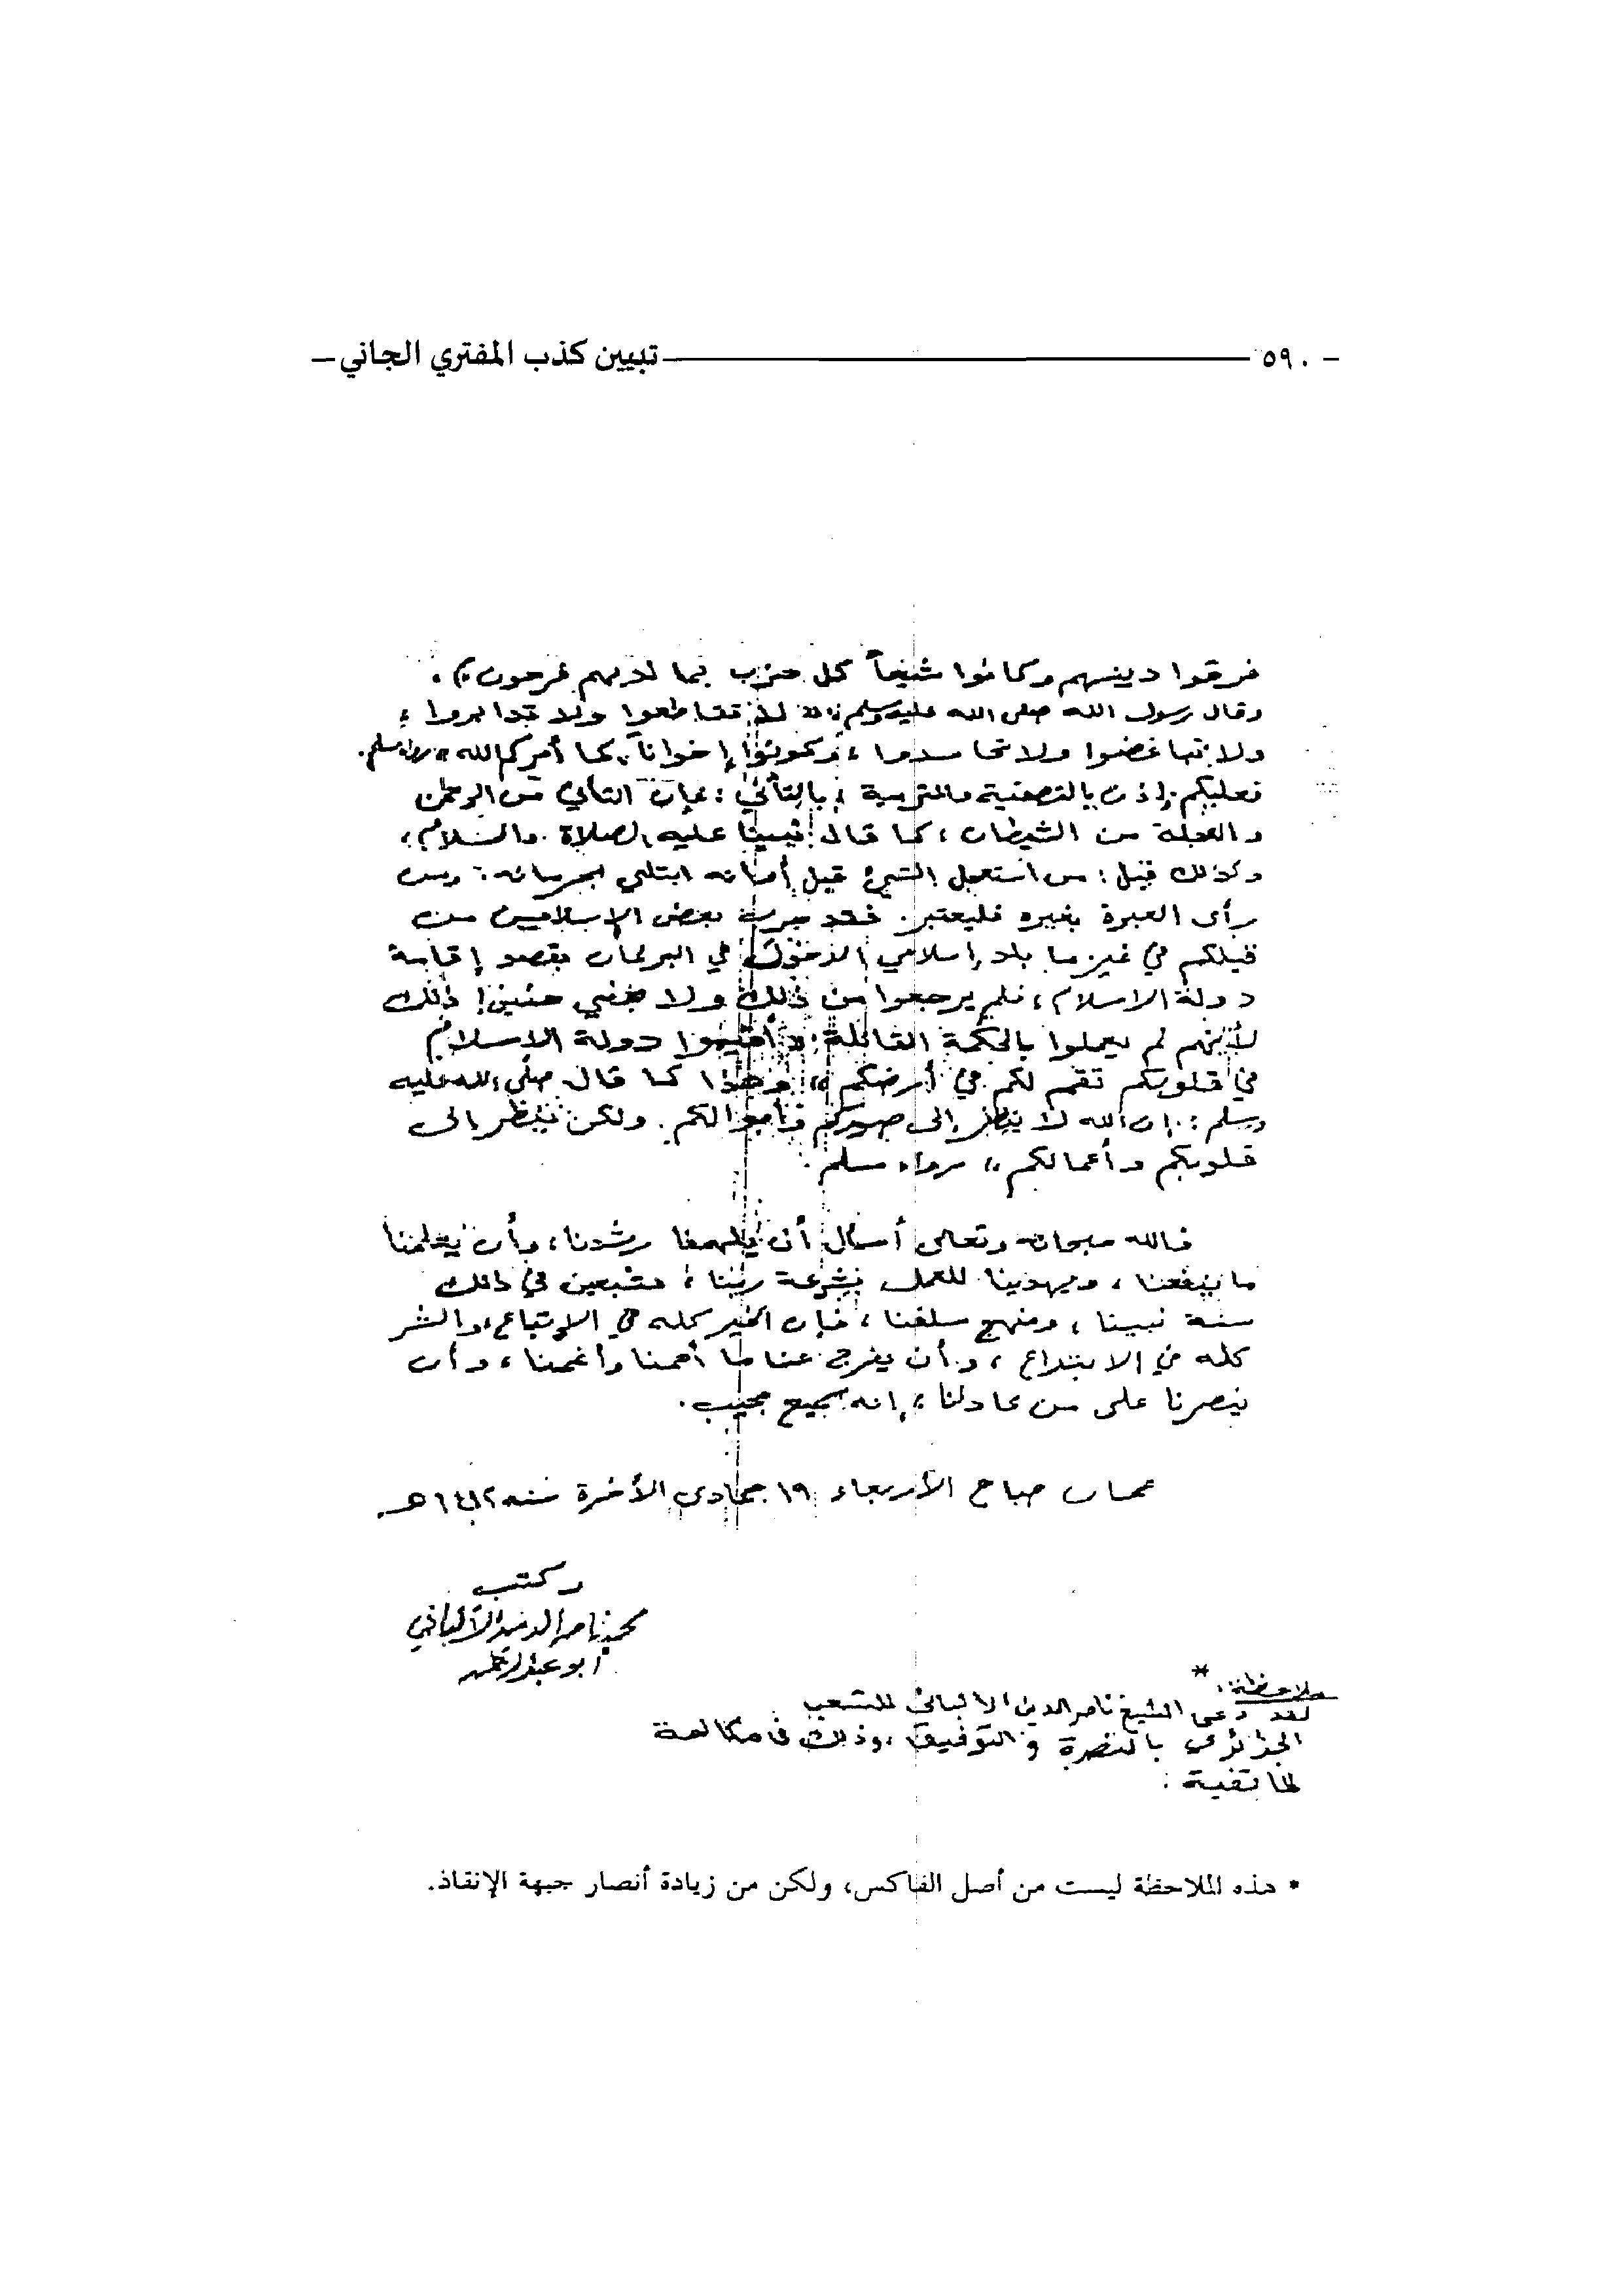 - ٥٩٠ تبيين كذب المفتري الجاني -
فرقوا دينهم وكانوا شيعاً كل حزب بما لديهم فرحون﴾ .
وقال رسول الله صلى الله عليه وسلم : « لا تقاطعوا ولا تدابروا ،
ولا تباغضوا ولا تحاسدوا ، وكونوا إخواناً كما أمركم الله » رواه مسلم .
فعليكم إذن بالتصفية والتربية ، بالتأني ؛ فإن التأني من الرحمن
والعجلة من الشيطان ، كما قال نبينا عليه الصلاة والسلام ،
وكذلك قيل : من استعجل الشيء قبل أوانه ابتلي بحرمانه . ومن
رأى العبرة بغيره فليعتبر . فقد جرب بعض الإسلاميين من
قبلكم في غير ما بلد إسلامي الدخول في البرلمان بقصد إقامة
دولة الاسلام ، فلم يرجعوا من ذلك ولا بخفي حنين ! ذلك
لأنهم لم يعملوا بالحكمة القائلة : « أقيموا دولة الاسلام
في قلوبكم تقم لكم في أرضكم » ، وهذا كما قال صلى الله عليه
وسلم : إن الله لا ينظر إلى صوركم وأموالكم . ولكن ينظر إلى
قلوبكم وأعمالكم » رواه مسلم .
فالله سبحانه وتعالى أسأل أن يلهمنا رشدنا ، وأن يعلمنا
ما ينفعنا ، ويهدينا للعمل بشرعة ربنا ، متبعين في ذلك
سنة نبينا ، ومنهج سلفنا ، فإن الخير كله في الإتباع ، والشر
كله في الابتداع ، وأن يفرج عنا ما أهمنا وأغمنا ، وأن
ينصرنا على من عادانا ، إنه سميع مجيب .
عمان صباح الأربعاء ١٩ جمادى الأخرة سنه ١٤١٢هـ.
وكتب
محمد ناصر الدين الألباني
أبو عبد الرحمن
ملاحظة : *
لقد دعى الشيخ ناصر الدين الالباني للشعب
الجزائري بالنصرة والتوفيق ، وذلك في مكالمة
هاتفية :
* هذه الملاحظة ليست من أصل الفاكس، ولكن من زيادة أنصار جبهة الإنقاذ.